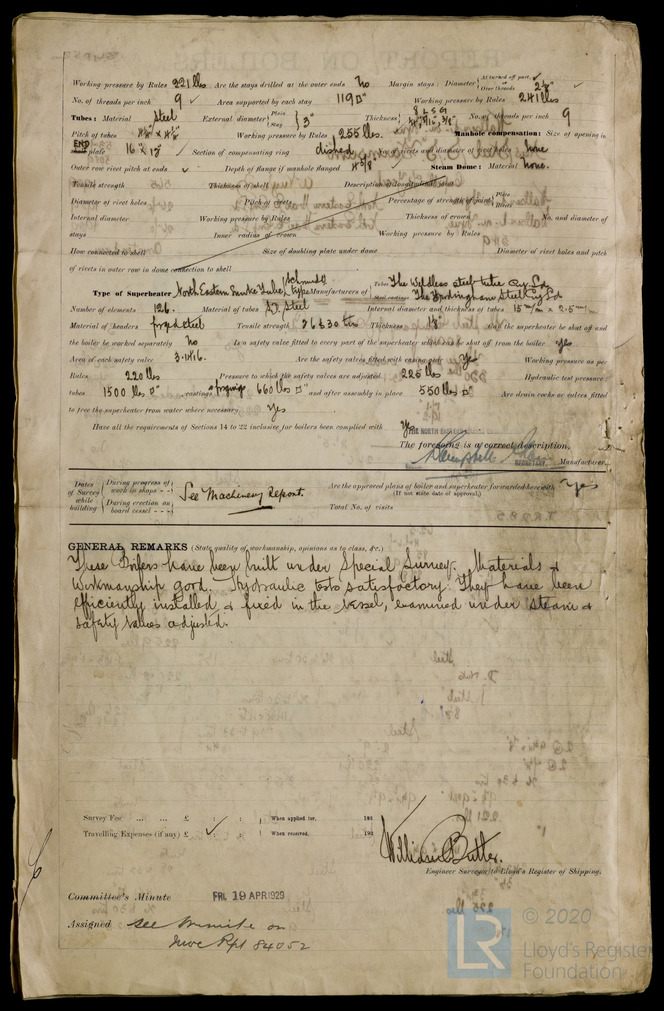 Working pressure by Rules 221 lbs Are the stays drilled at the outer ends No Margin stays: Diameter { At turned off part, or Over threads 2⅛" ✓
No. of threads per inch 9 ✓ Area supported by each stay 119 □" Working pressure by Rules 241 lbs
Tubes: Material Steel External diameter { Plain Stay } 3" Thickness { 8 L.S.G. 5/16", 3/8" No. of threads per inch 9
Pitch of tubes Working pressure by Rules 255 lbs. Manhole compensation: Size of opening in
END shell plate 16" x 12" ✓ Section of compensating ring dished No. of rivets and diameter of rivet holes None
Outer row rivet pitch at ends ✓ Depth of flange if manhole flanged Steam Dome: Material None.
Tensile strength Thickness of shell Description of longitudinal joint
Diameter of rivet holes Pitch of rivets Percentage of strength of joint { Plate Rivets
Internal diameter Working pressure by Rules Thickness of crown No. and diameter of
stays Inner radius of crown Working pressure by Rules
How connected to shell Size of doubling plate under dome Diameter of rivet holes and pitch
of rivets in outer row in dome connection to shell
Type of Superheater North Eastern Smoke Tube (Schmidt type) Manufacturers of { Tubes The Weldless Steel Tube Coy Ld
Steel castings The Steel Coy Ld
Number of elements 126. Material of tubes S.D. Steel Internal diameter and thickness of tubes 15 m/m x 2.5 m/m
Material of headers forged steel Tensile strength 26 to 30 tons Thickness Can the superheater be shut off and
the boiler be worked separately No Is a safety valve fitted to every part of the superheater which can be shut off from the boiler yes
Area of each safety valve 3.1416. Are the safety valves fitted with easing gear Yes Working pressure as per
Rules 220 lbs Pressure to which the safety valves are adjusted 225 lbs Hydraulic test pressure:
tubes 1500 lbs □" castings forgings 660 lbs □" and after assembly in place 550 lbs □" Are drain cocks or valves fitted
to free the superheater from water where necessary Yes
Have all the requirements of Sections 14 to 22 inclusive for boilers been complied with Yes
THE NORTH EASTERN
The foregoing is a correct description,
SECRETARY. Manufacturer.
Dates of Survey while building { During progress of work in shops - - During erection on board vessel - - - } See Machinery Report. Are the approved plans of boiler and superheater forwarded herewith Yes
(If not state date of approval.)
Total No. of visits
GENERAL REMARKS (State quality of workmanship, opinions as to class, &c.)
These Boilers have been built under Special Survey. Materials &
Workmanship good. Hydraulic tests satisfactory. They have been
efficiently installed & fixed in the vessel, examined under steam &
safety valves adjusted.
Survey Fee ... ... £ : : When applied for, 192
Travelling Expenses (if any) £ ✓ : : When received, 192
William Butler.
Engineer Surveyor to Lloyd's Register of Shipping.
Committee's Minute FRI. 19 APR 1929
Assigned see minute on
Nwc Rpt 84052
LR © 2020
Lloyd's Register
Foundation